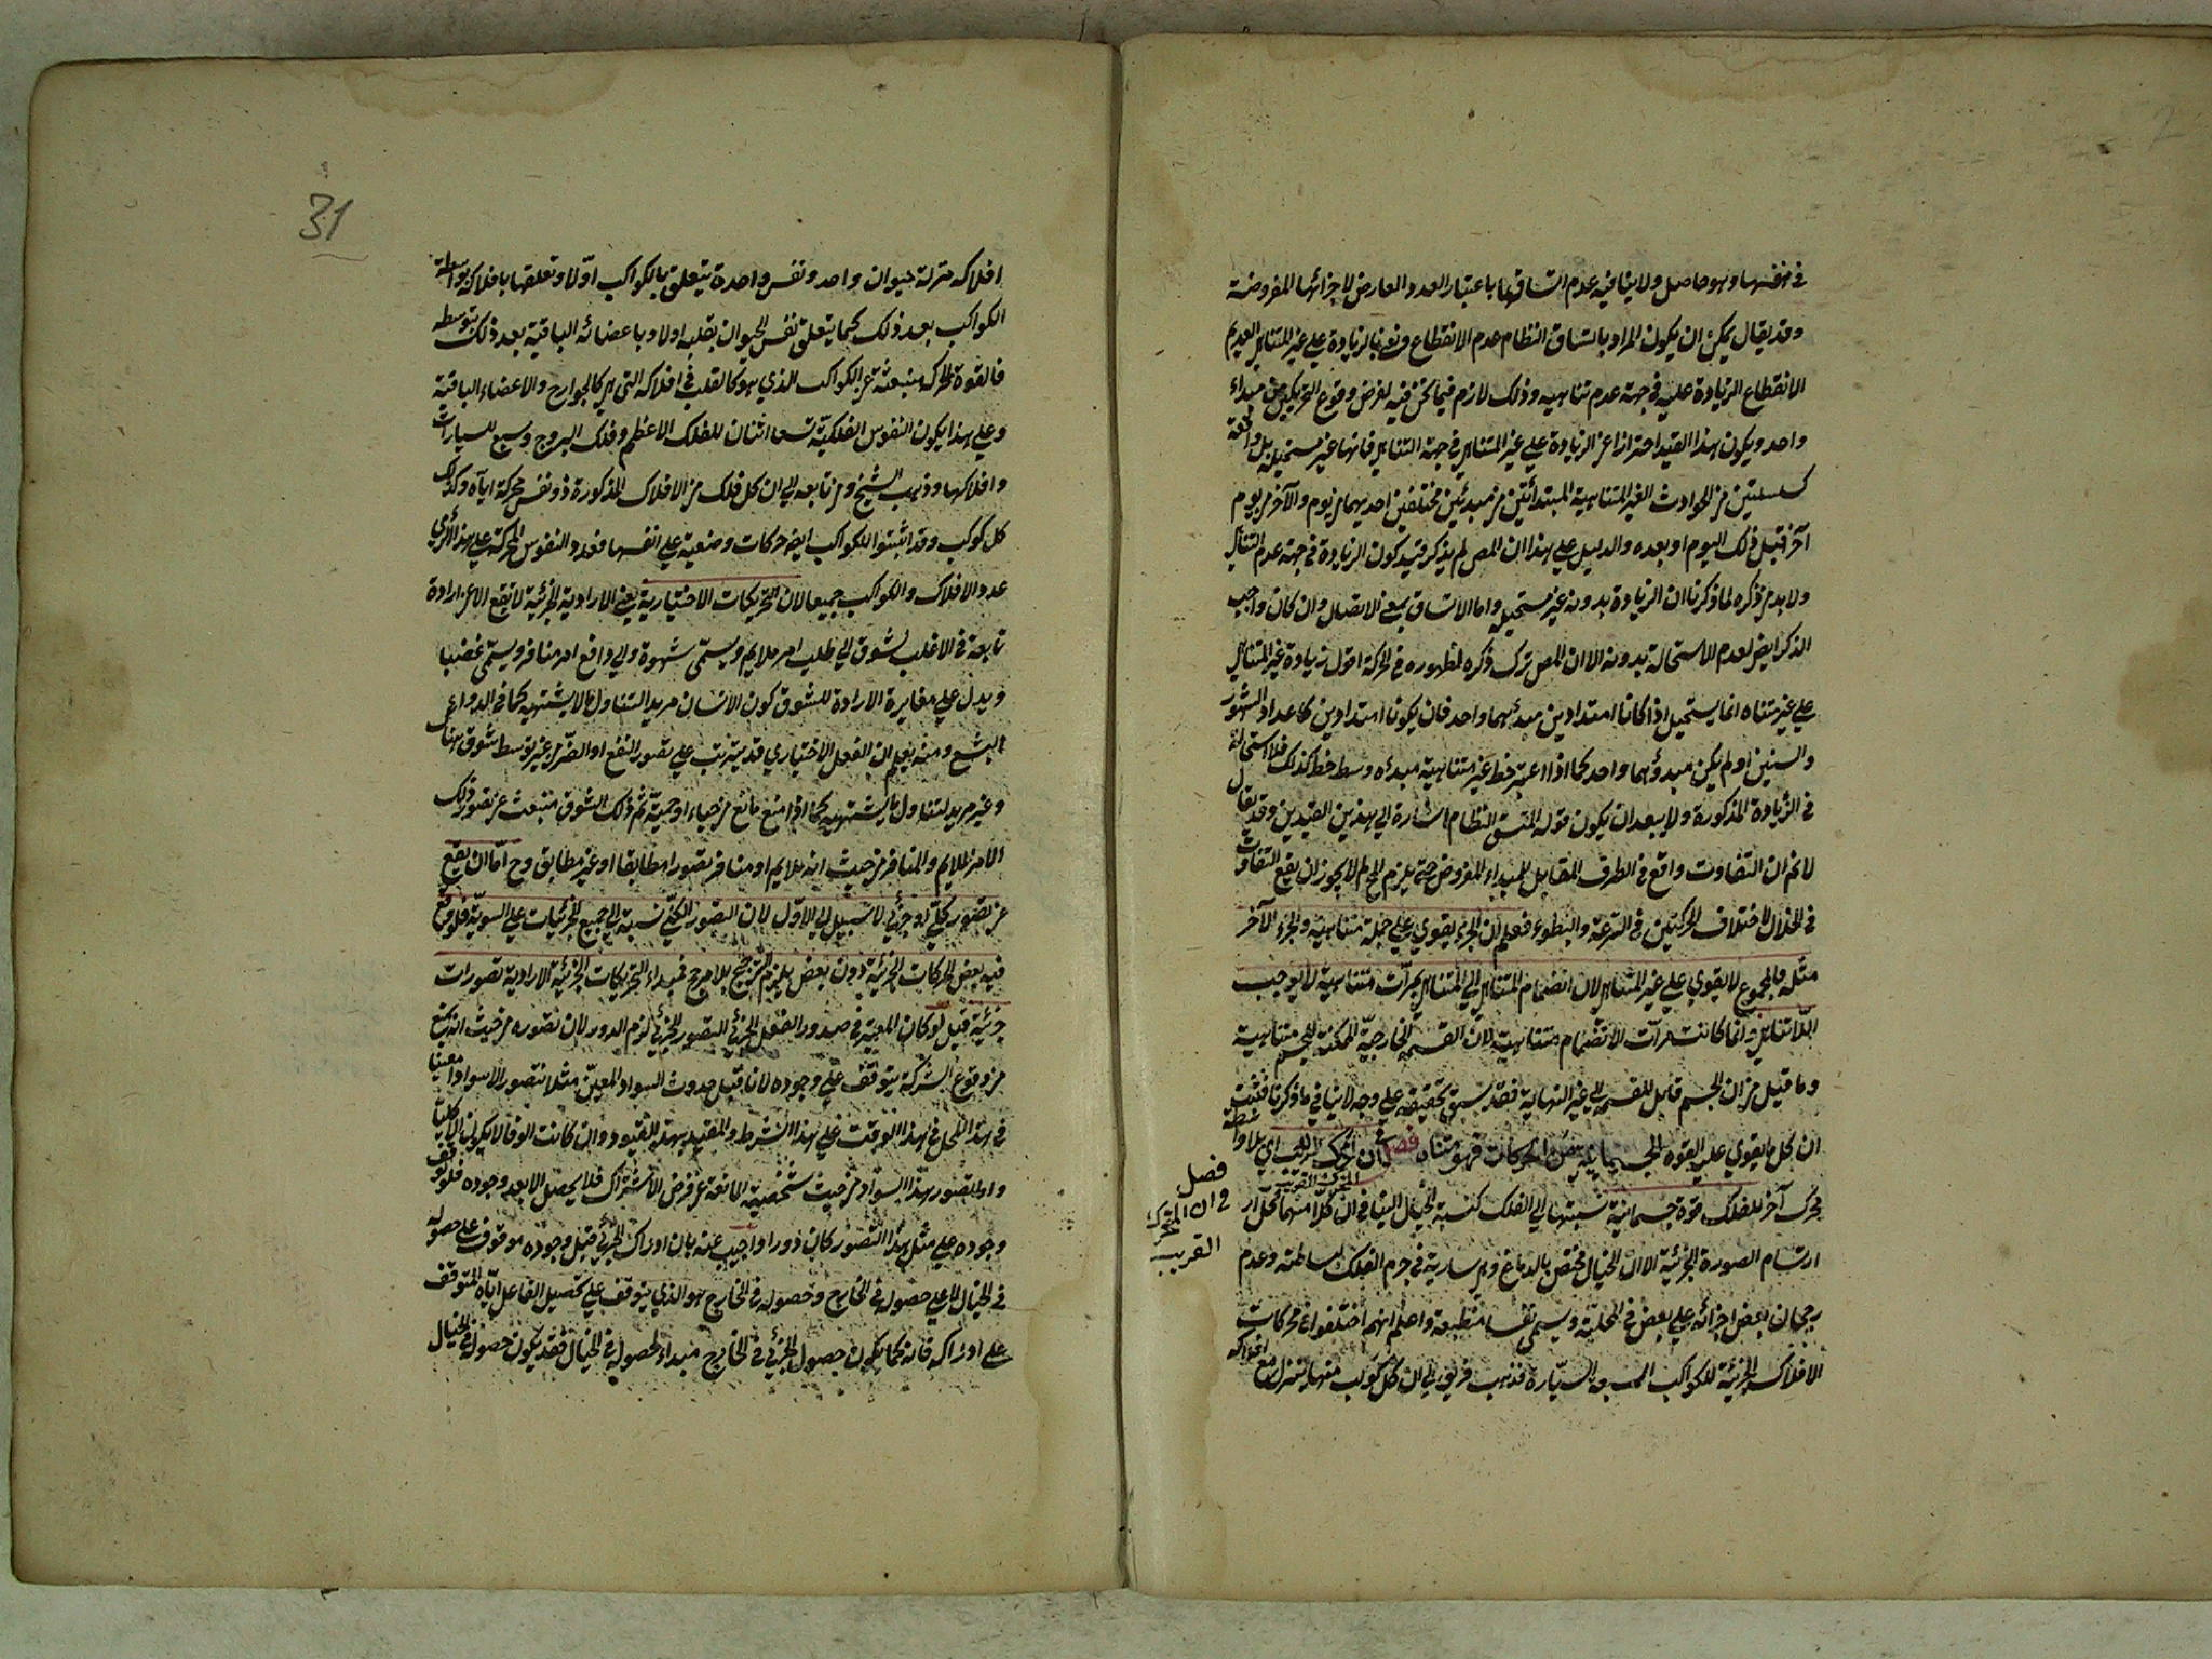 في نفسها وهو حاصل ولا ينافيه عدم اتساقها باعتبار العدد العارض لاجزائها المفروضة
وقد يقال يمكن ان يكون المراد باتساق النظام عدم الانقطاع ونعني بالزيادة علي غير المتناهي العديم
الانقطاع الزيادة عليه في جهة عدم تناهيه وذلك لازم فيما نحن فيه لفرض وقوع التحريكين من مبداء
واحد ويكون هذا القيد احترازا عن الزيادة علي غير المتناهي في جهة التناهي فانها غير مستحيلة بل واقعة
كسلسلتين من الحوادث الغير المتناهية المبتدأتين من مبدئين مختلفين احديهما من يوم والآخر من يوم
آخر قبل ذلك اليوم او بعده والدليل علي هذا ان المص لم يذكر قيد كون الزيادة في جهة عدم التناهي
ولا بد من ذكره لما ذكرنا ان الزيادة بدونه غير مستحيلة واما الاتساق بمعني الاتصال وان كان واجب
الذكر ايض لعدم الاستحالة بدونه الا ان المص ترك ذكره لظهوره في الحركة اقول زيادة غير المتناهي
علي غير متناه انما يستحيل اذا كانا امتدادين مبدئهما واحد فان يكونا امتدادين كاعداد الشهور
والسنين او لم يكن مبدؤهما واحد كما اذا اعتبر خط غير متناهية مبدئه وسط خط كذلك فلا استحالة
في الزيادة المذكورة ولا يبعد ان يكون قوله المتسق النظام اشارة الي هذين القيدين وقد يقال
لا نم ان التفاوت واقع في الطرف المقابل للمبداء المفروض حتي يلزم المح لم لا يجوز ان يقع التفاوت
في الخلال لاختلاف الحركتين في السرعة والبطوء فعلم ان الجزء يقوي علي جملة متناهية والجزء الآخر
مثله فالمجموع لا يقوي علي غير المتناهي لان انضمام المتناهي الي المتناهي بمرّات متناهية لا يوجب
اللّاتناهي وانما كانت مرات الانضمام متناهية لان القسمة الخارجيّة الممكنة للجسم متناهية
وما قيل من ان الجسم قابل للقسمة الي غير النهاية فقد سبق تحقيقه علي وجه لا ينافي ما ذكرنا فثبت
ان كل ما يقوي عليه القوة الجسمانية من الحركات فهو متناه فصل في ان المحرك القريب اي بلا واسطة
محرك آخر للفلك قوة جسمانية نسبتها الي الفلك كنسبة الخيال الينا في ان كلّا منهما محلّ ار
ارتسام الصورة الجزئية الا ان الخيال مختص بالدماغ وهي سارية في جرم الفلك لبساطته وعدم
رجحان بعض اجزائه علي بعض في المحلية ويسمي نفسا منطبعة واعلم انهم اختلفوا في محركات
الافلاك الجزئية للكواكب السبعة السيّارة فذهب فريق الي ان كل كوكب منها يتنزل مع افلاكه
فصل
في ان المحرك
القريب
31
افلاكه منزلة حيوان واحد ونفس واحدة يتعلق بالكواكب اوّلا وتعلقها بافلاكه بواسطة
الكواكب بعد ذلك كما يتعلق نفس الحيوان بقلبه اولا وباعضائه الباقية بعد ذلك بتوسطه
فالقوة المحركة منبعثة عن الكواكب الذي هو كالقلب في افلاكه التي هي كالجوارح والاعضاء الباقية
وعلي هذا يكون النفوس الفلكيّة تسعا اثنان للفلك الاعظم وفلك البروج وسبع للسيارات
وافلاكها وذهب الشيخ ومن تابعه الي ان كل فلك من الافلاك المذكورة ذو نفس محركة اياه وكذلك
كل كوكب وقد اثبتوا للكواكب ايض حركات وضعية علي انفسها فعدد النفوس المحركة علي هذا الرأي
عدد الافلاك والكواكب جميعا لان التحريكات الاختيارية يعني الارادية الجزئية لا تقع الا عن ارادة
تابعة في الاغلب لشوق الي طلب امر ملايم ويسمي شهوة والي دافع امر منافر ويسمي غضبا
ويدل علي مغايرة الارادة للشوق كون الانسان مريد التناول ما لا يشتهيه كما في الدواء
البشع ومنه يعلم ان الفعل الاختياري قد يترتب علي تصور النفع او الضرّ من غير توسط شوق هناك
وغير مريد لتناول ما يشتهيه كما اذا منع مانع من حياء او حميّة ثم ذلك الشوق منبعث عن تصور ذلك
الامر الملايم والمنافر من حيث انه ملايم او منافر تصورا مطابقا او غير مطابق وح امّا ان يقع
عن تصور كلّي او جزئي لا سبيل الي الاوّل لان التصور الكلّي نسبته الي جميع الجزئيات علي السويّة فلو وقع
فيه بعض الحركات الجزئية دون بعض يلزم الترجيح بلا مرجح فمبداء التحريكات الجزئية الارادية تصورات
جزئية قيل لو كان المعتبر في صدور الفعل الجزئي التصور الجزئي لزم الدور لان تصوره من حيث انه يمنع
من وقوع الشركة يتوقف علي وجوده لانا قبل حدوث السواد المعيّن مثلا نتصور الاسواد معينا
في هذا المحل في هذا الوقت علي هذا الشرط والمقيد بهذه القيود وان كانت الوفا لا يكون الا كليّا
واما تصور هذا السواد من حيث شخصيته المانعة عن فرض الاشتراك فلا يحصل الا بعد وجوده فلو توقف
وجوده علي مثل هذا التصور كان دورا واجيب عنه بان ادراك الجزئي قبل وجوده موقوف علي حصوله
في الخيال لا علي حصوله في الخارج وحصوله في الخارج هو الذي يتوقف علي تحصيل الفاعل ايّاه المتوقف
علي ادراكه فانه كما يكون حصول الجزئي في الخارج مبداء لحصوله في الخيال فقد يكون حصوله في الخيال